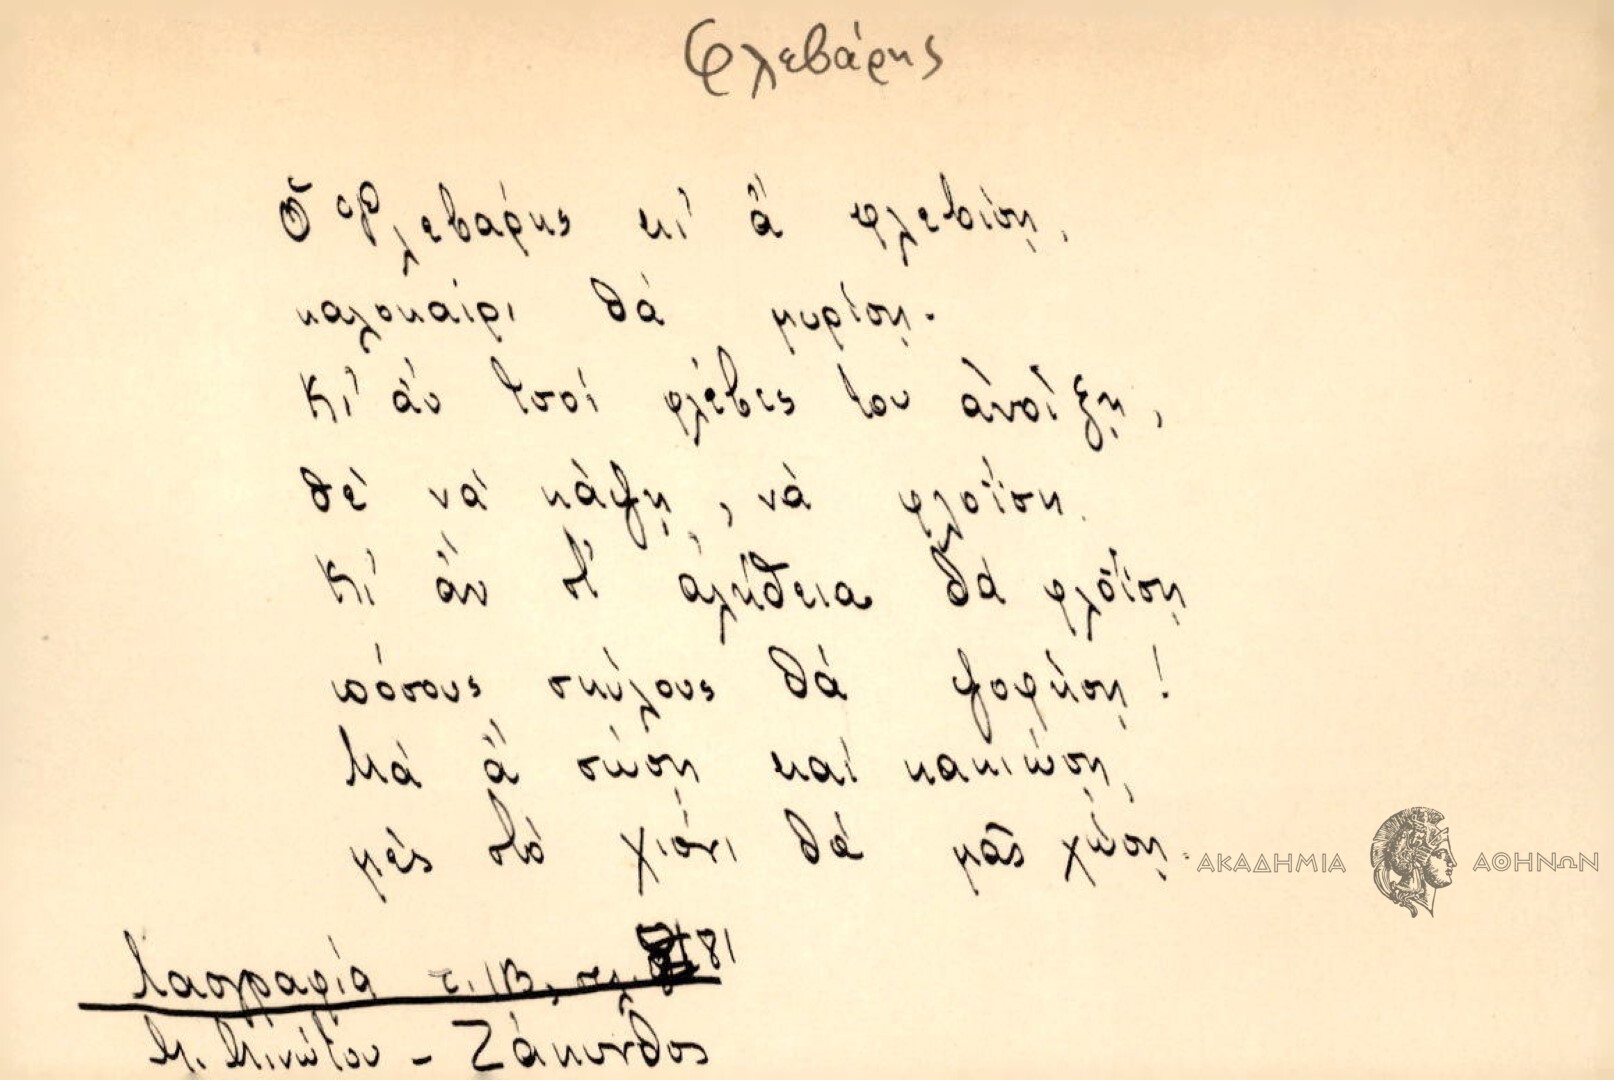 Φλεβάρης
Ὁ Φλεβάρης κι' ἂ φλεβίση,
καλοκαίρι θὰ μυρίση.
Κι' ἂν τσοὶ φλέβες του ἀνοίξη,
θὲ νὰ κάψη, νὰ φλοΐση
Κι' ἂν στ' ἀλήθεια θὰ φλοΐση
πόσους σκύλους θὰ ψοφήση!
Μὰ ἂ σώση καὶ κακιώση,
μὲς στὸ χιόνι θὰ μᾶς χώση.
ΑΚΑΔΗΜΙΑ ΑΘΗΝΩΝ
Λαογραφία τ. ΙΒ, σελ. 181
Μ. Μινώτου - Ζάκυνθος